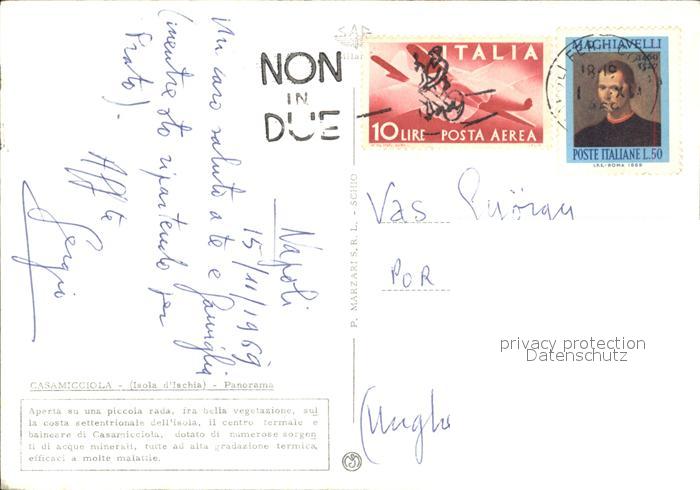 Napoli
15/11/1969
Un caro saluto a te e famiglia
(mentre sto ripartendo per
Prato).
Aff.te
Sergio
CASAMICCIOLA - (Isola d'Ischia) - Panorama
Aperta su una piccola rada, fra bella vegetazione, sul
la costa settentrionale dell'isola, il centro termale e
balneare di Casamicciola, dotato di numerose sorgen
ti di acque minerali, tutte ad alta gradazione termica,
efficaci a molte malattie.
P. MARZARI S.R.L. - SCHIO
NON
IN
DUE
ITALIA
10 LIRE - POSTA AEREA
MACHIAVELLI
1469
1527
POSTE ITALIANE L.50
I.P.S.-ROMA 1969
18-19
Vas
POR
privacy protection
Datenschutz